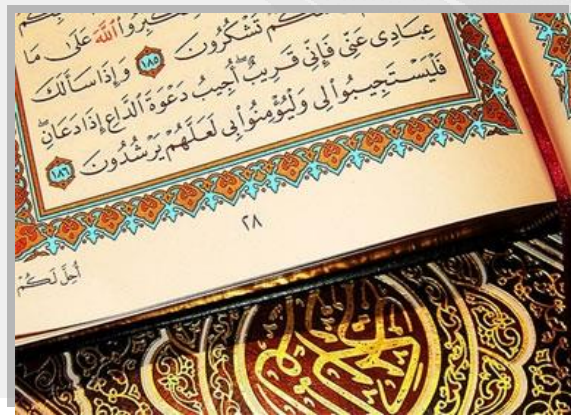 وَلِتُكَبِّرُوا۟ ٱللَّهَ عَلَىٰ مَا
تَشْكُرُونَ ١٨٥ وَإِذَا سَأَلَكَ
عِبَادِى عَنِّى فَإِنِّى قَرِيبٌ أُجِيبُ دَعْوَةَ ٱلدَّاعِ إِذَا دَعَانِ
فَلْيَسْتَجِيبُوا۟ لِى وَلْيُؤْمِنُوا۟ بِى لَعَلَّهُمْ يَرْشُدُونَ ١٨٦
٢٨
أُحِلَّ لَكُمْ